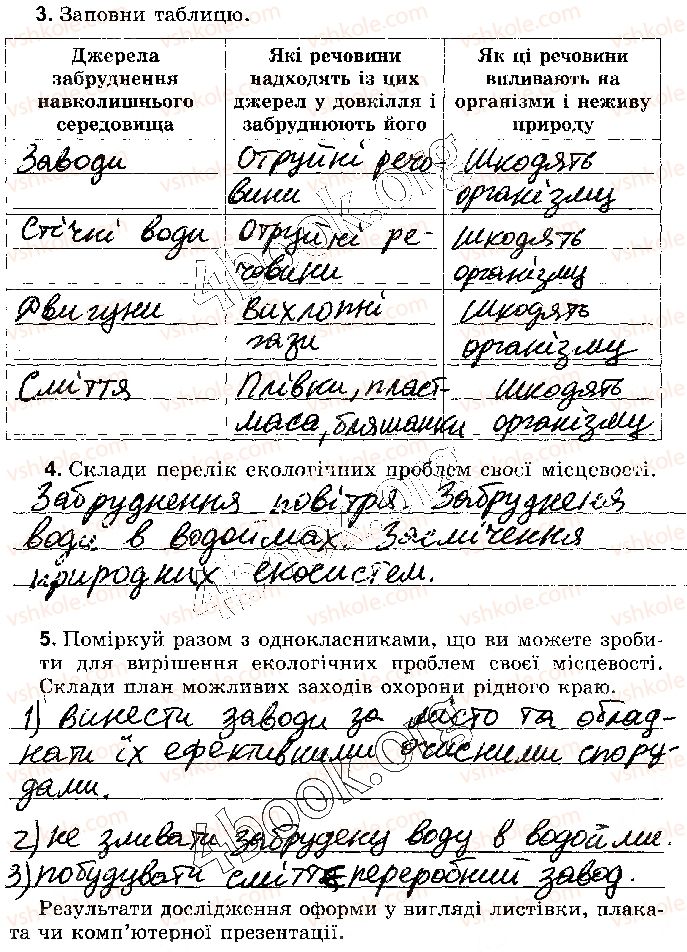 3. Заповни таблицю.
Джерела забруднення навколишнього середовища
Які речовини надходять із цих джерел у довкілля і забруднюють його
Як ці речовини впливають на організми і неживу природу
Заводи
Отруйні речо-
вини
Шкодять
організму
Стічні води
Отруйні ре-
човини
Шкодять
організму
Двигуни
Вихлопні
гази
Шкодять
організму
Сміття
Плівки, пласт-
маса, бляшанки
Шкодять
організму
4. Склади перелік екологічних проблем своєї місцевості.
Забруднення повітря. Забруднення
води в водоймах. Засмічення
природних екосистем.
5. Поміркуй разом з однокласниками, що ви можете зроби-
ти для вирішення екологічних проблем своєї місцевості.
Склади план можливих заходів охорони рідного краю.
1) винести заводи за місто та облад-
нати їх ефективними очисними спору-
дами.
2) не зливати забруднену воду в водойми.
3) побудувати сміттєпереробний завод.
Результати дослідження оформи у вигляді листівки, плака-
та чи комп'ютерної презентації.
4book.org
vshkole.com